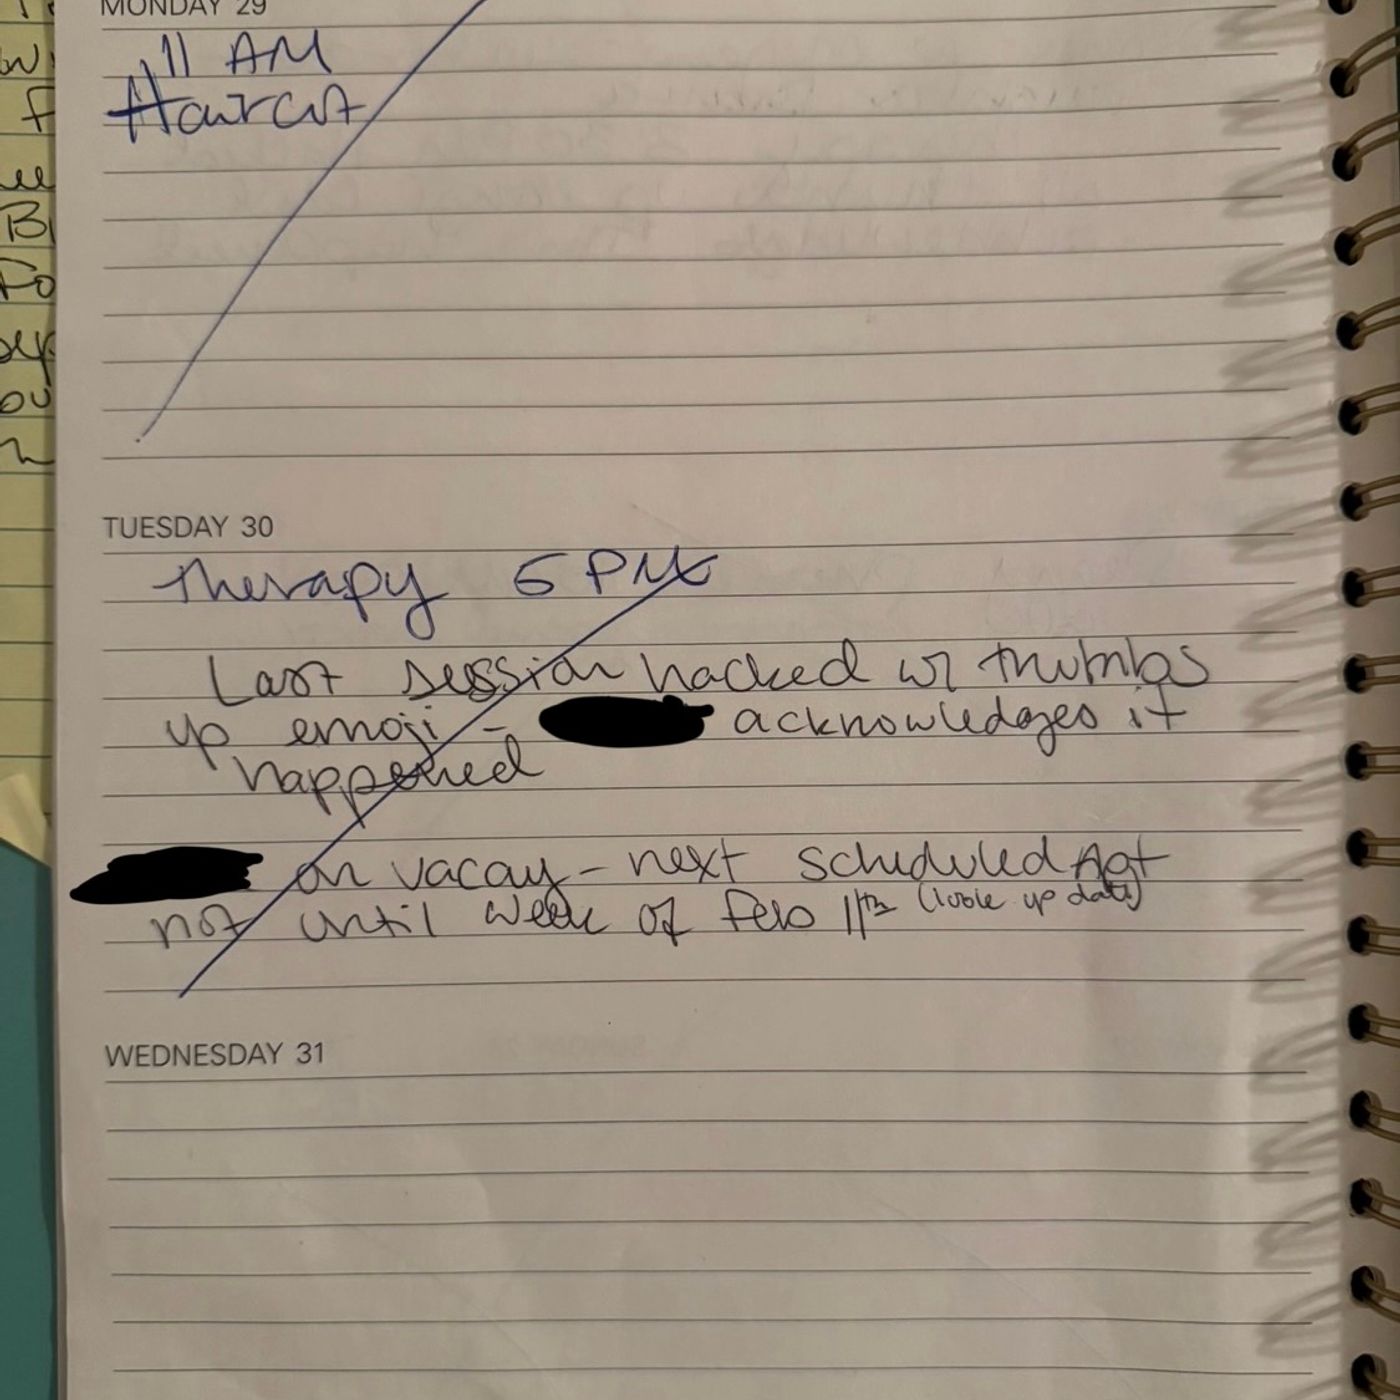 MONDAY 29
11 AM
Haircut
TUESDAY 30
Therapy 5 PM
Last session hacked w/ thumbs
up emoji - acknowledges it
happened
on vacay - next scheduled Apt
not until week of Feb 11th (look up date)
WEDNESDAY 31